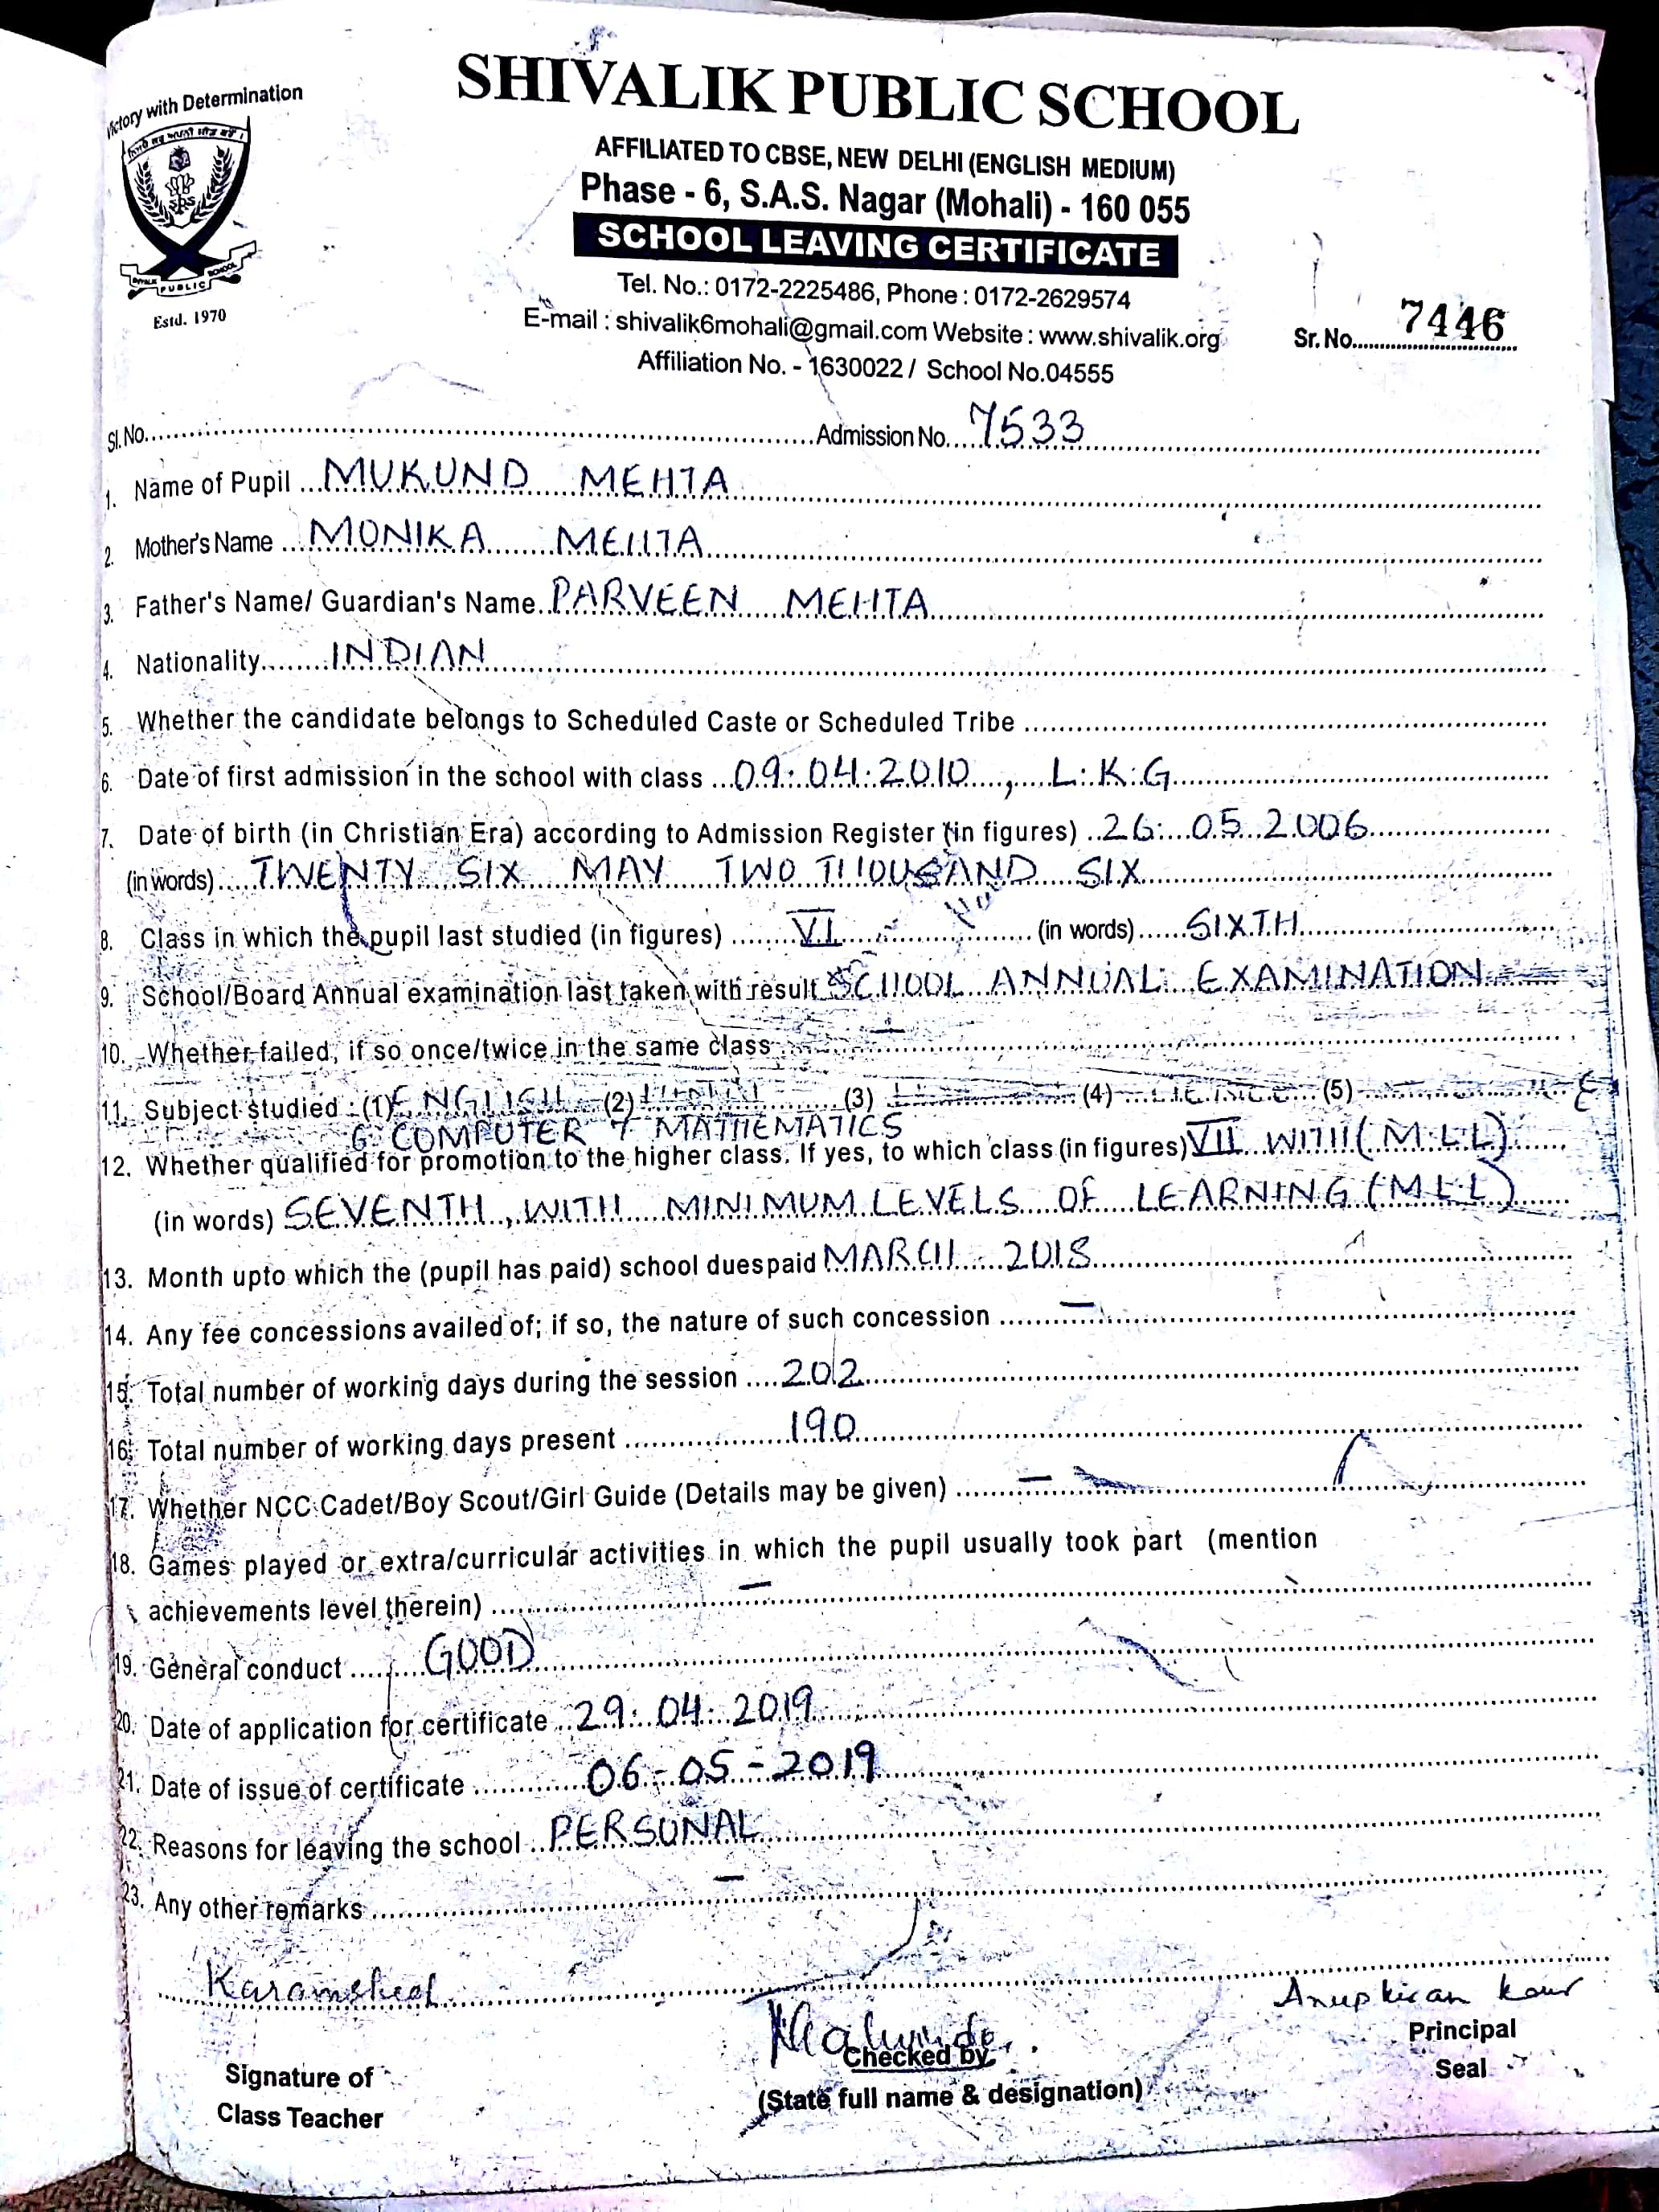 Victory with Determination
SHIVALIK PUBLIC SCHOOL
AFFILIATED TO CBSE, NEW DELHI (ENGLISH MEDIUM)
Phase - 6, S.A.S. Nagar (Mohali) - 160 055
SCHOOL LEAVING CERTIFICATE
Tel. No.: 0172-2225486, Phone : 0172-2629574
E-mail : shivalik6mohali@gmail.com Website : www.shivalik.org
Affiliation No. - 1630022 / School No.04555
SPS
PUBLIC SCHOOL
Estd. 1970
Sr. No. 7446
Sl. No. Admission No. 7533
1. Name of Pupil MUKUND MEHTA
2. Mother's Name MONIKA MEHTA
3. Father's Name/ Guardian's Name PARVEEN MEHTA
4. Nationality INDIAN
5. Whether the candidate belongs to Scheduled Caste or Scheduled Tribe
6. Date of first admission in the school with class 09.04.2010, L.K.G
7. Date of birth (in Christian Era) according to Admission Register (in figures) 26.05.2006
(in words) TWENTY SIX MAY TWO THOUSAND SIX
8. Class in which the pupil last studied (in figures) VI (in words) SIXTH
9. School/Board Annual examination last taken with result SCHOOL ANNUAL EXAMINATION
10. Whether failed, if so once/twice in the same class
11. Subject studied : (1) ENGLISH (2) (3) (4) (5)
6 COMPUTER 7 MATHEMATICS
12. Whether qualified for promotion to the higher class. If yes, to which class (in figures) VII WITH (M.L.L)
(in words) SEVENTH, WITH MINIMUM LEVELS OF LEARNING (M.L.L)
13. Month upto which the (pupil has paid) school duespaid MARCH 2018
14. Any fee concessions availed of; if so, the nature of such concession —
15. Total number of working days during the session 202
16. Total number of working days present 190
17. Whether NCC Cadet/Boy Scout/Girl Guide (Details may be given) —
18. Games played or extra/curricular activities in which the pupil usually took part (mention
achievements level therein) —
19. General conduct GOOD
20. Date of application for certificate 29.04.2019
21. Date of issue of certificate 06-05-2019
22. Reasons for leaving the school PERSONAL
23. Any other remarks —
Anupkiran Kaur
Signature of
Class Teacher
Checked by
(State full name & designation)
Principal
Seal